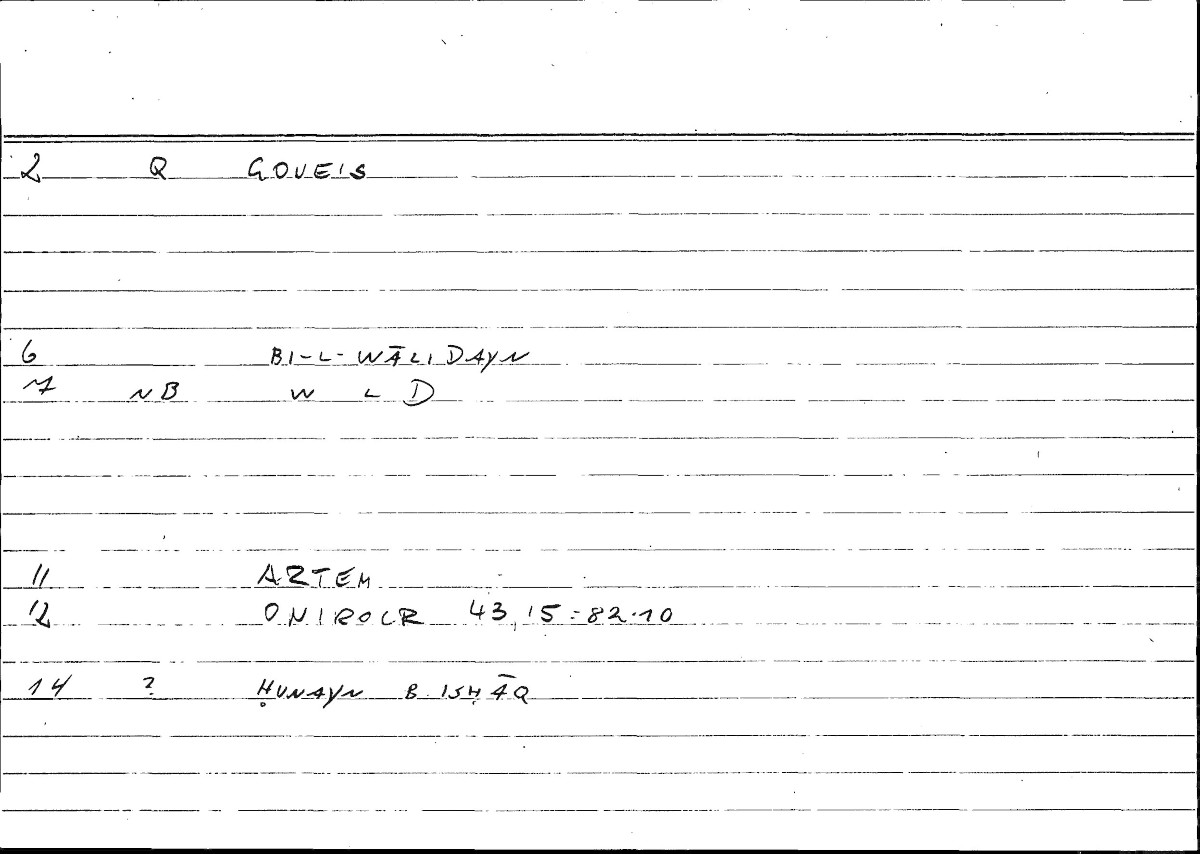 2 Q GOVEIS
6 BI-L-WĀLIDAYN
7 NB W L D
11 ARTEM
12 ONIROCR 43,15=82.10
14 ? ḤUNAYN B ISḤĀQ